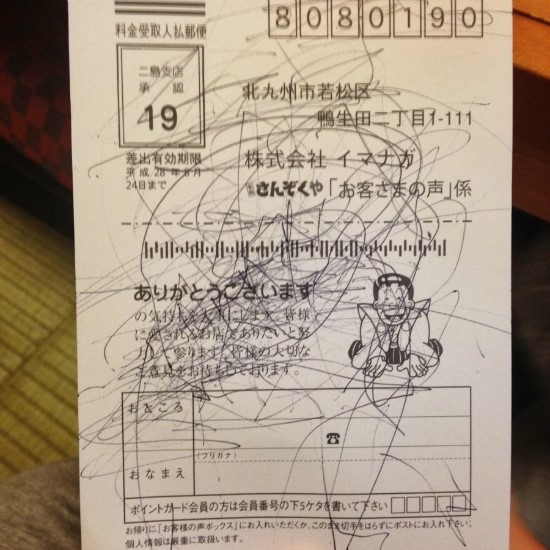 8080190
料金受取人払郵便
二島支店
承認
19
差出有効期限
平成28年8月
24日まで
北九州市若松区
鴨生田二丁目1-111
株式会社 イマナガ
さんぞくや「お客さまの声」係
ありがとうございます
の気持ちを大事にします。皆様
に愛されるお店でありたいと努
力して参ります。皆様の大切な
ご意見をお待ちしております。
おところ
☎
(フリガナ)
おなまえ
ポイントカード会員の方は会員番号の下5ケタを書いて下さい
お帰りに「お客様の声ボックス」にお入れいただくか、このまま切手をはらずにポストにお入れ下さい。
個人情報は厳重に取扱います。